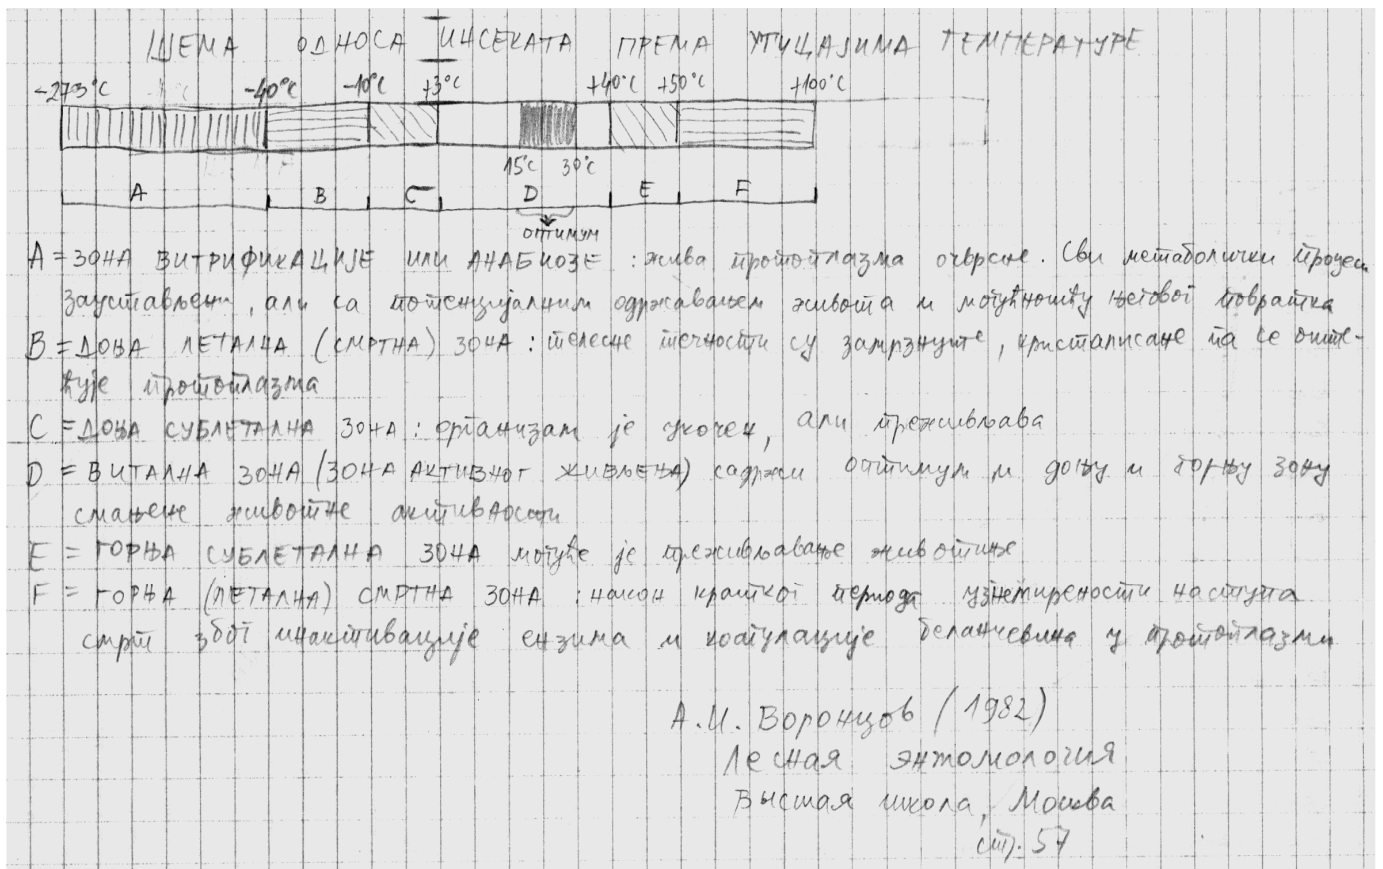 ШЕМА ОДНОСА ИНСЕКАТА ПРЕМА УТИЦАЈИМА ТЕМПЕРАТУРЕ
-273°C -40°C -10°C +3°C +40°C +50°C +100°C
15°C 30°C
A B C D E F
оптимум
A = ЗОНА ВИТРИФИКАЦИЈЕ ИЛИ АНАБИОЗЕ : жива протоплазма очврсне. Сви метаболички процеси
заустављени, али са потенцијалним одржавањем живота и могућношћу његовог повратка
B = ДОЊА ЛЕТАЛНА (СМРТНА) ЗОНА : телесне течности су замрзнуте, кристалисане па се оште-
ћује протоплазма
C = ДОЊА СУБЛЕТАЛНА ЗОНА : организам је укочен, али преживљава
D = ВИТАЛНА ЗОНА (ЗОНА АКТИВНОГ ЖИВЉЕЊА) садржи оптимум и доњу и горњу зону
смањене животне активности
E = ГОРЊА СУБЛЕТАЛНА ЗОНА могуће је преживљавање животиње
F = ГОРЊА (ЛЕТАЛНА) СМРТНА ЗОНА : након кратког периода узнемирености наступа
смрт због инактивације ензима и коагулације беланчевина у протоплазми
А.И. Воронцов (1982)
Лесная энтомология
Высшая школа, Москва
стр. 57